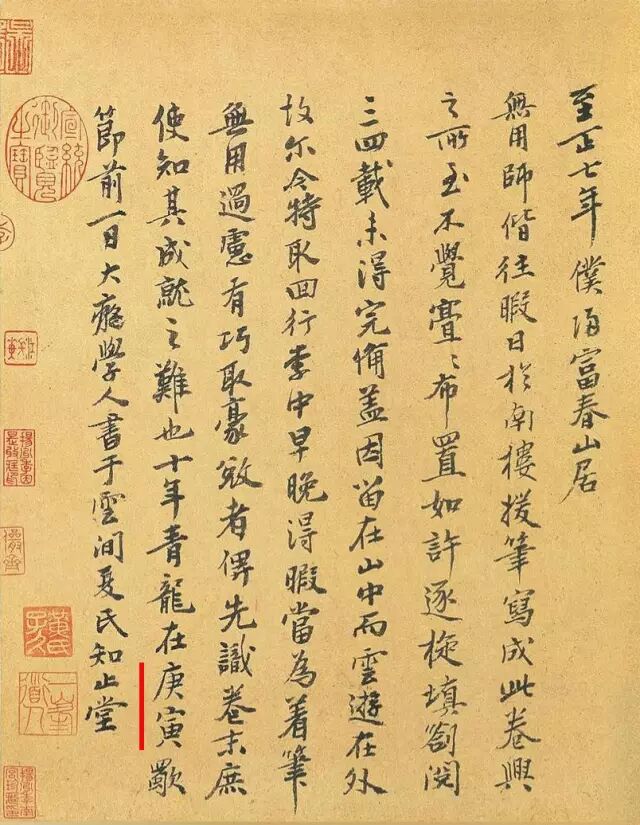 至正七年僕歸富春山居
無用師偕往暇日於南樓援筆寫成此卷興
之所至不覺亹〻布置如許逐旋填劄閱
三四載未得完俻盖因留在山中而雲遊在外
故尔今特取回行李中早晚得暇當為着筆
無用過慮有巧取豪敚者俾先識卷末庶
使知其成就之難也十年青龍在庚寅歜
節前一日大癡學人書于雲間夏氏知止堂
宣統御覽之寶
黃氏子久
一峯道人